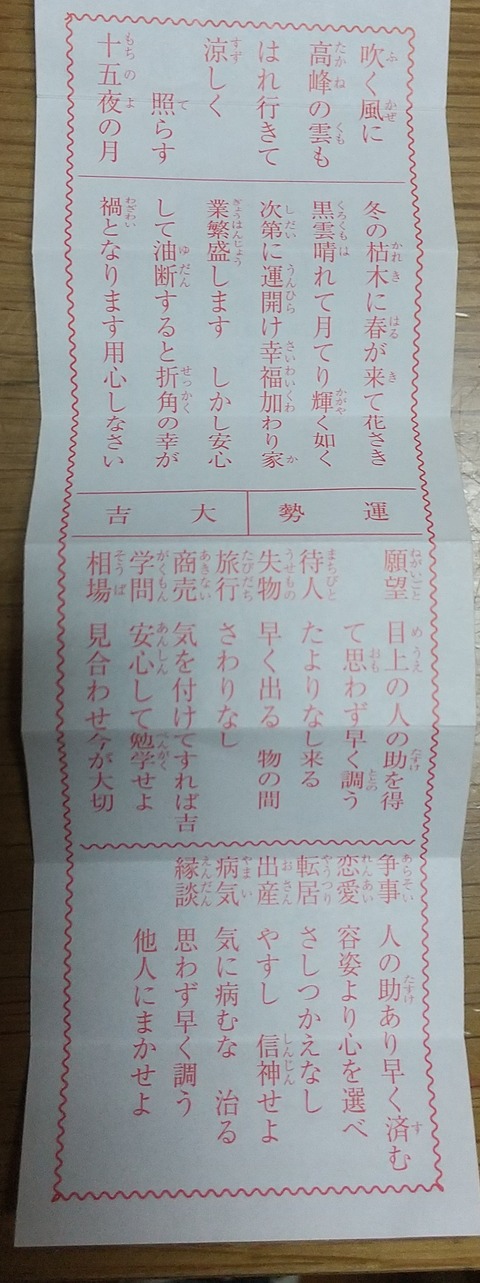 吹く風に
高峰の雲も
はれ行きて
涼しく
照らす
十五夜の月
冬の枯木に春が来て花さき
黒雲晴れて月てり輝く如く
次第に運開け幸福加わり家
業繁盛します しかし安心
して油断すると折角の幸が
禍となります用心しなさい
運勢 大吉
願望 目上の人の助を得
て思わず早く調う
待人 たよりなし来る
失物 早く出る 物の間
旅行 さわりなし
商売 気を付けてすれば吉
学問 安心して勉学せよ
相場 見合わせ今が大切
争事 人の助あり早く済む
恋愛 容姿より心を選べ
転居 さしつかえなし
出産 やすし 信神せよ
病気 気に病むな 治る
縁談 思わず早く調う
他人にまかせよ